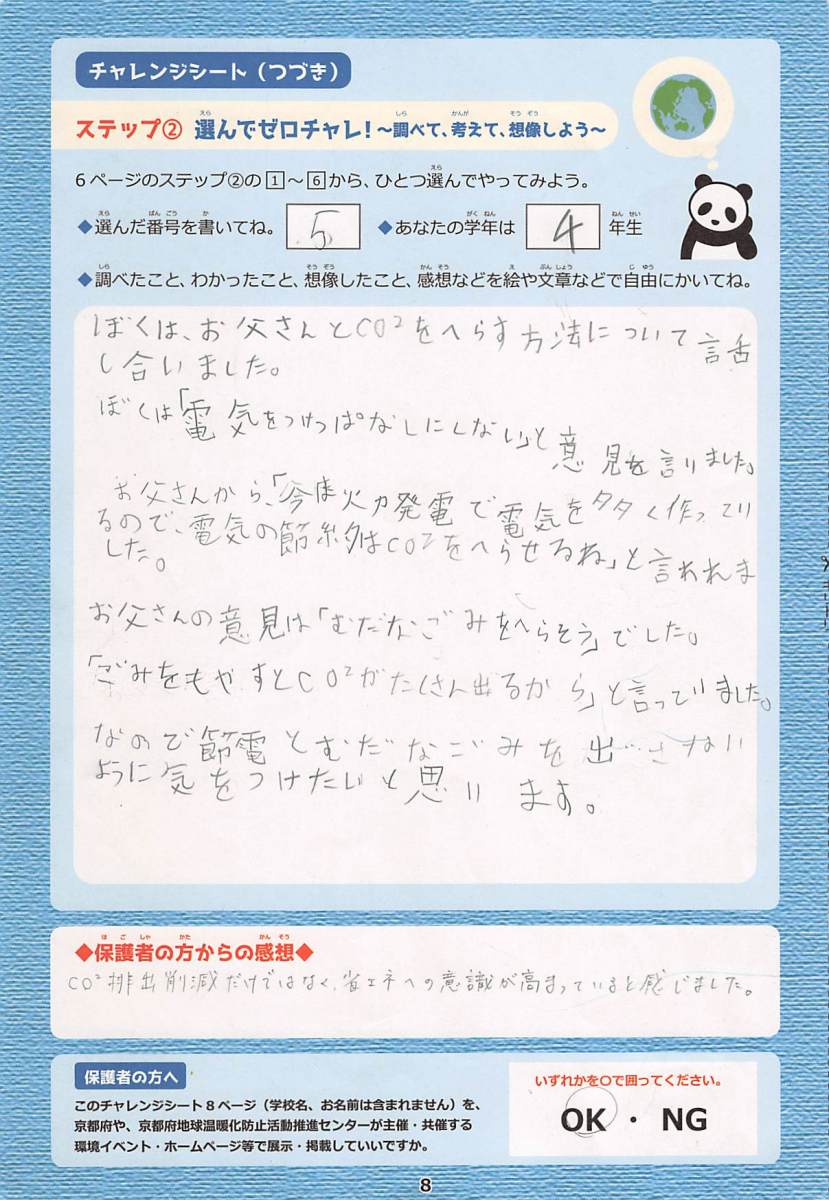 チャレンジシート（つづき）
ステップ② 選んでゼロチャレ！～調べて、考えて、想像しよう～
6ページのステップ②の1～6から、ひとつ選んでやってみよう。
◆選んだ番号を書いてね。 5 ◆あなたの学年は 4 年生
◆調べたこと、わかったこと、想像したこと、感想などを絵や文章などで自由にかいてね。
ぼくは、お父さんとCO²をへらす方法について話
し合いました。
ぼくは「電気をつけっぱなしにしない」と意見を言いました。
お父さんから、「今は火力発電で電気を多く作ってい
るので、電気の節約はCO²をへらせるね」と言われま
した。
お父さんの意見は「むだなごみをへらそう」でした。
「ごみをもやすとCO²がたくさん出るから」と言っていました。
なので節電とむだなごみを出ださない
ように気をつけたいと思います。
◆保護者の方からの感想◆
CO²排出削減だけではなく、省エネへの意識が高まっていると感じました。
保護者の方へ
このチャレンジシート8ページ（学校名、お名前は含まれません）を、
京都府や、京都府地球温暖化防止活動推進センターが主催・共催する
環境イベント・ホームページ等で展示・掲載していいですか。
いずれかを○で囲ってください。
OK ・ NG
8